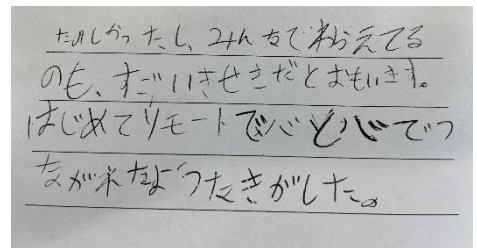 たのしかったし、みんなでわらえてる
のも、すごいきせきだとおもいます。
はじめてリモートで心と心でつ
ながれたようなきがした。